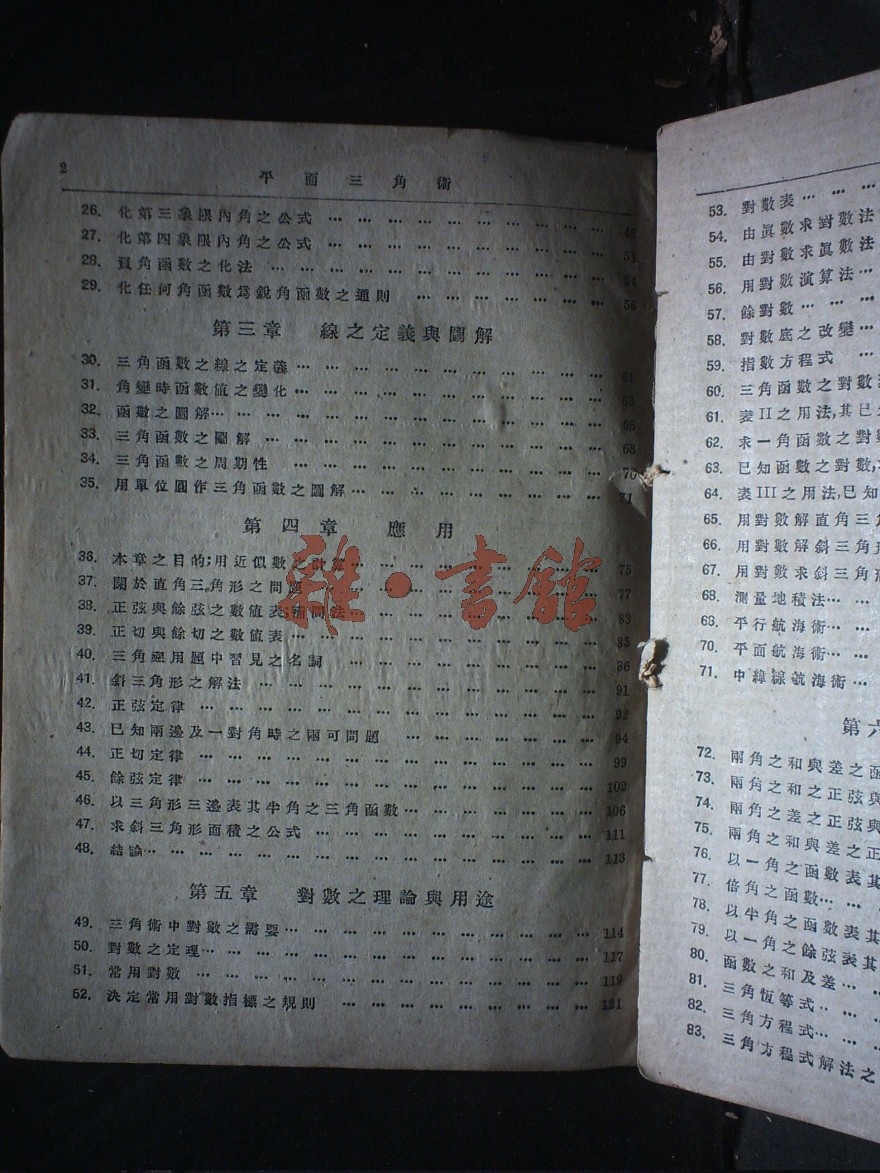 2
平面三角術
26. 化第三象限內角之公式 … … … 49
27. 化第四象限內角之公式 … … … 51
28. 負角函數之化法 … … … 54
29. 化任何角函數爲銳角函數之通則 … … … 56
第三章 線之定義與圖解
30. 三角函數之線之定義 … … … 61
31. 角變時函數值之變化 … … … 63
32. 函數之圖解 … … … 66
33. 三角函數之圖解 … … … 68
34. 三角函數之周期性 … … … 70
35. 用單位圓作三角函數之圖解 … … … 71
第四章 應用
36. 本章之目的;用近似數之 … … … 75
37. 關於直角三角形之問題 … … … 77
38. 正弦與餘弦之數值表;補間法 … … … 83
39. 正切與餘切之數值表 … … … 85
40. 三角應用題中習見之名詞 … … … 86
41. 斜三角形之解法 … … … 91
42. 正弦定律 … … … 92
43. 已知兩邊及一對角時之兩可問題 … … … 94
44. 正切定律 … … … 99
45. 餘弦定律 … … … 102
46. 以三角形三邊表其半角之三角函數 … … … 106
47. 求斜三角形面積之公式 … … … 111
48. 結論 … … … 113
第五章 對數之理論與用途
49. 三角術中對數之需要 … … … 114
50. 對數之定理 … … … 117
51. 常用對數 … … … 119
52. 決定常用對數指標之規則 … … … 121
53. 對數表 … … …
54. 由眞數求對數法
55. 由對數求眞數法
56. 用對數演算法 …
57. 餘對數 … … …
58. 對數底之改變 …
59. 指數方程式 …
60. 三角函數之對數
61. 表II之用法,其已
62. 求一角函數之對
63. 已知函數之對數,
64. 表III之用法,已知
65. 用對數解直角三
66. 用對數解斜三角
67. 用對數求斜三角形
68. 測量地積法 … …
69. 平行航海術 … …
70. 平面航海術 … …
71. 中緯線航海術 …
第六
72. 兩角之和與差之函
73. 兩角之和之正弦與
74. 兩角之差之正弦與
75. 兩角之和與差之正
76. 以一角之函數表其
77. 倍角之函數 … …
78. 以半角之函數表其
79. 以一角之餘弦表其
80. 函數之和及差 …
81. 三角恆等式 … …
82. 三角方程式 … …
83. 三角方程式解法之
雜·書館